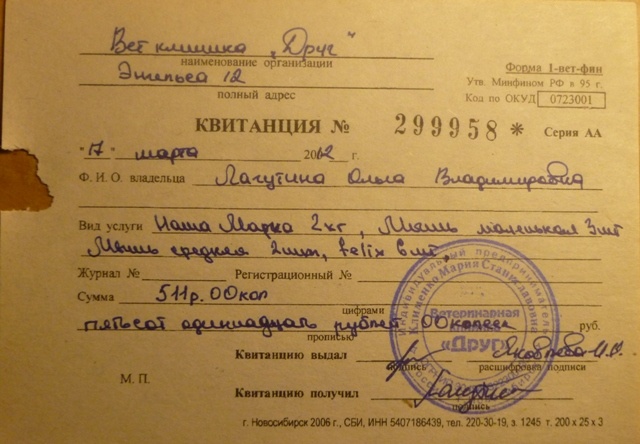 Вет клиника „Друг"
наименование организации
Энгельса 12
полный адрес
Форма 1-вет-фин
Утв. Минфином РФ в 95 г.
Код по ОКУД 0723001
КВИТАНЦИЯ № 299958 * Серия АА
"17" марта 2012 г.
Ф. И. О. владельца Лагутина Ольга Владимировна
Вид услуги Наша Марка 2кг, Мышь маленькая 3шт
Мышь средняя 2шт, felix 6шт,
Журнал № Регистрационный №
Сумма 511р. 00коп
цифрами
пятьсот одиннадцать рублей 00копеек руб.
прописью
Квитанцию выдал Яковлева
подпись расшифровка подписи
М. П.
Квитанцию получил Лагутина
подпись
г. Новосибирск 2006 г., СБИ, ИНН 5407186439, тел. 220-30-19, з. 1245 т. 200 x 25 x 3
Индивидуальный предприниматель
Клименко Мария Станиславовна
Ветеринарная
клиника
«Друг»